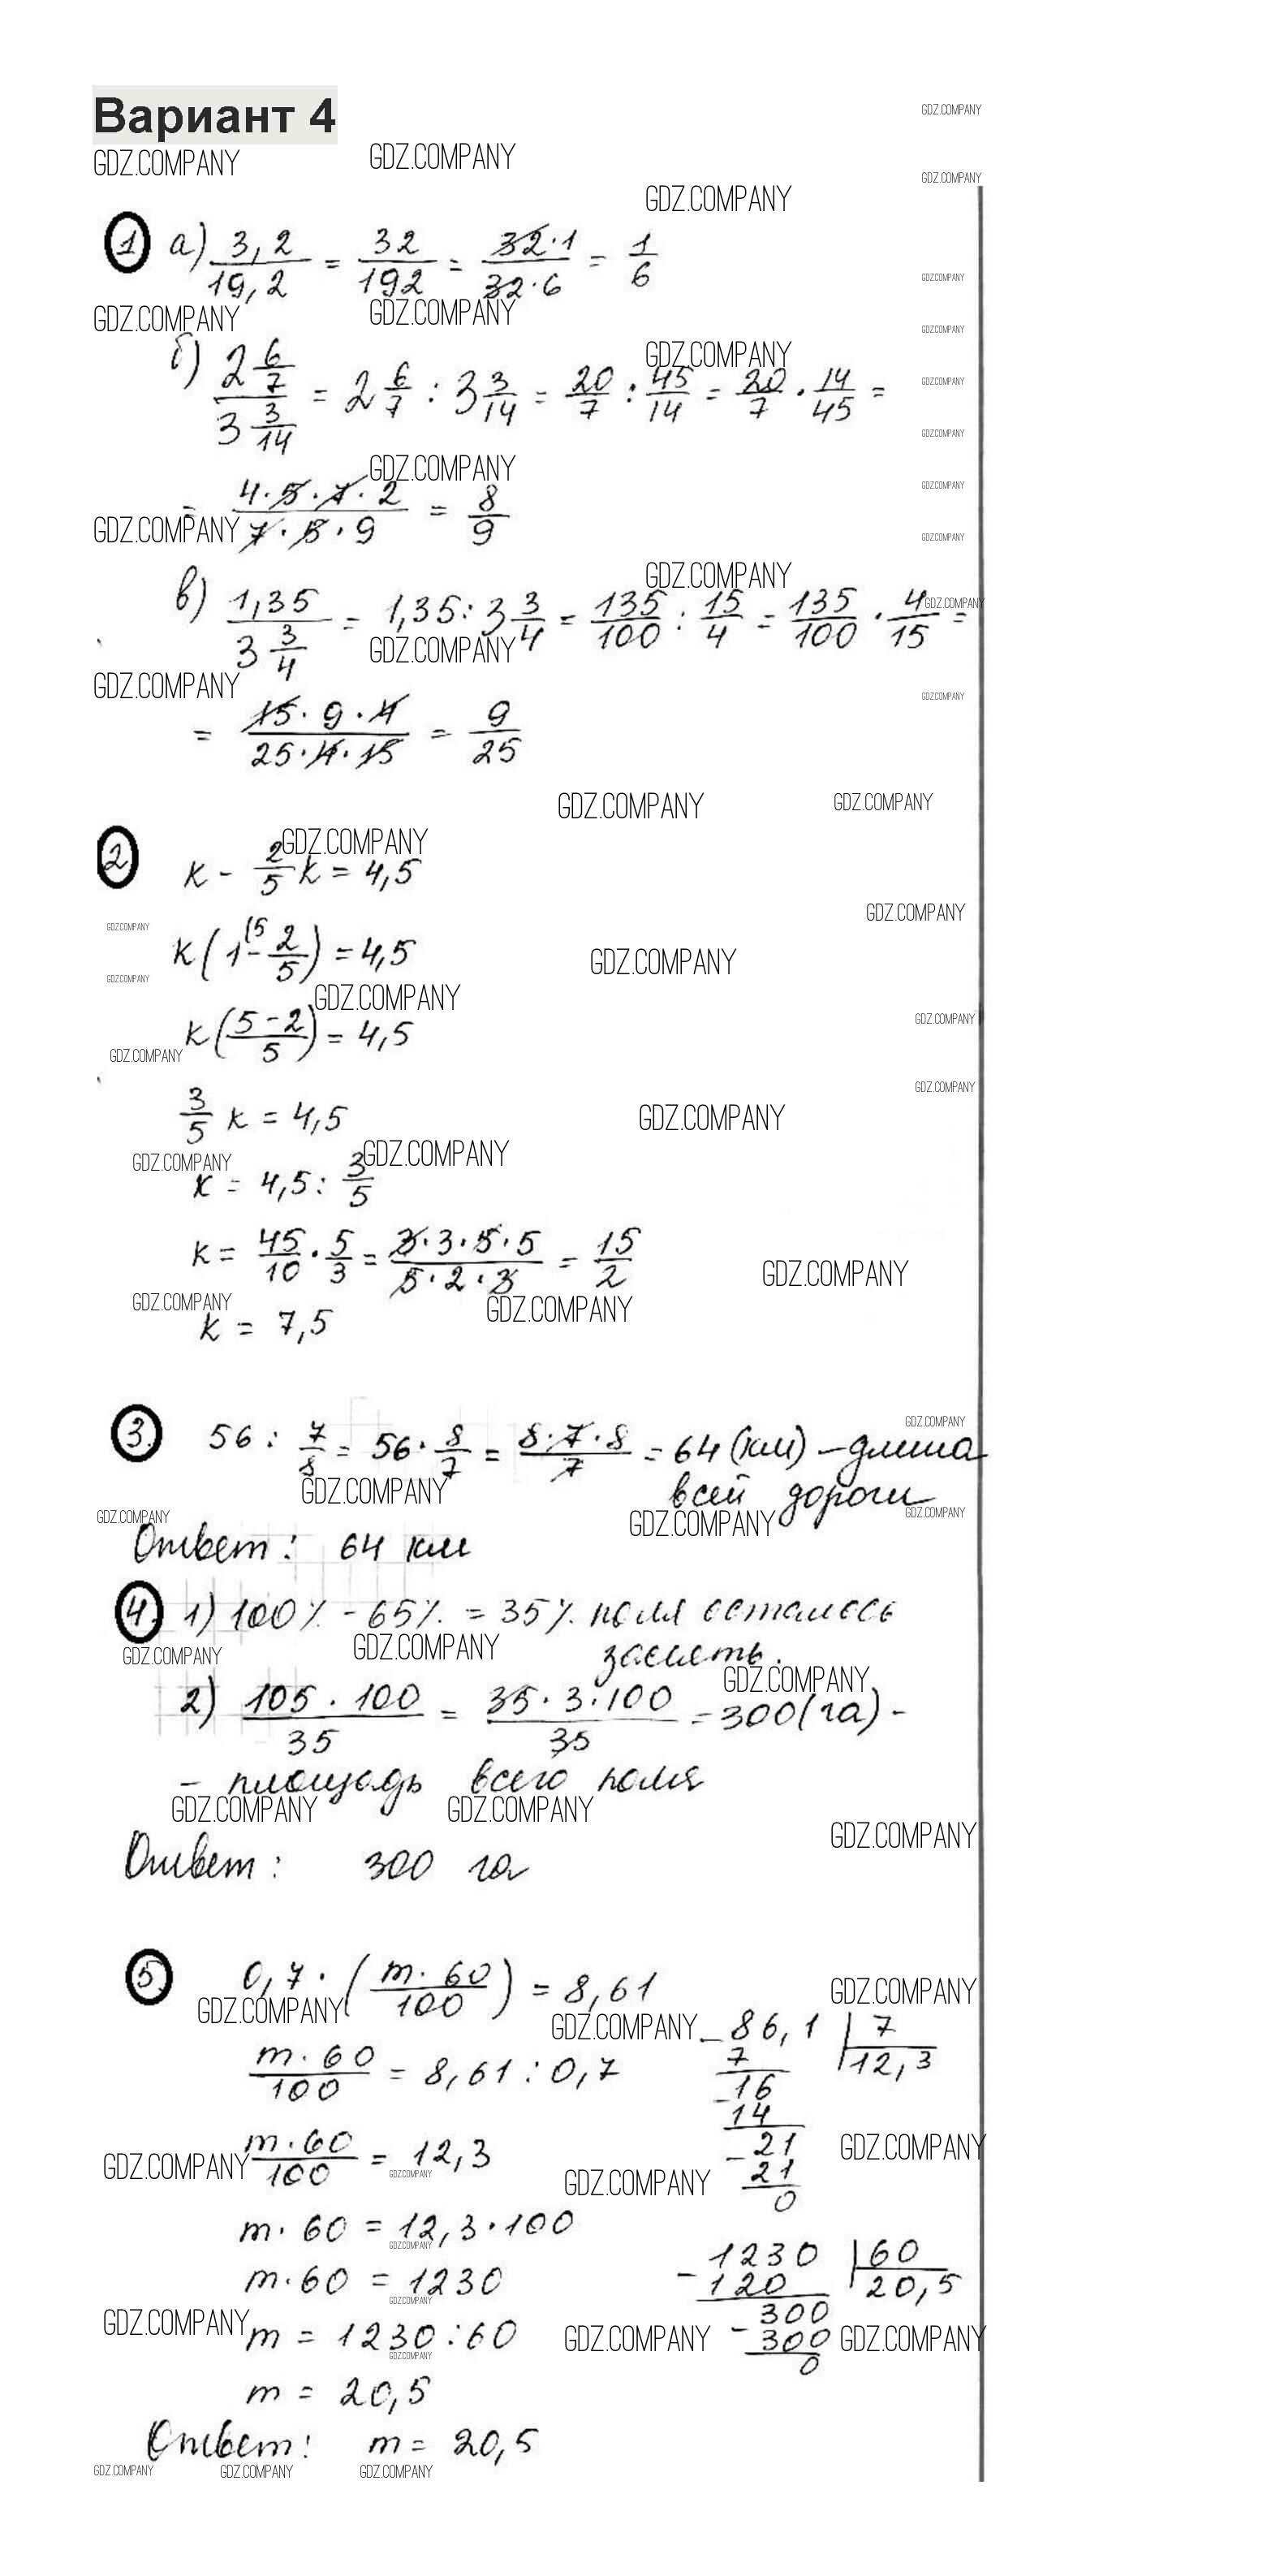 Вариант 4
GDZ.COMPANY
1 а) 3,2/19,2 = 32/192 = 32·1/32·6 = 1/6
б) 2 6/7 / 3 3/14 = 2 6/7 : 3 3/14 = 20/7 : 45/14 = 20/7 · 14/45 =
= 4·5·7·2/7·5·9 = 8/9
в) 1,35 / 3 3/4 = 1,35 : 3 3/4 = 135/100 : 15/4 = 135/100 · 4/15 =
= 15·9·4/25·4·15 = 9/25
2 к - 2/5 к = 4,5
к(1 (5 - 2/5) = 4,5
к(5-2/5) = 4,5
3/5 к = 4,5
к = 4,5 : 3/5
к = 45/10 · 5/3 = 3·3·5·5/5·2·3 = 15/2
к = 7,5
3. 56 : 7/8 = 56 · 8/7 = 8·7·8/7 = 64 (км) – длина
всей дороги
Ответ: 64 км
4. 1) 100% - 65% = 35% поля осталось
засеять.
2) 105·100/35 = 35·3·100/35 = 300 (га) -
- площадь всего поля
Ответ: 300 га
5. 0,7 · (m·60/100) = 8,61
m·60/100 = 8,61 : 0,7
m·60/100 = 12,3
m·60 = 12,3·100
m·60 = 1230
m = 1230 : 60
m = 20,5
Ответ: m = 20,5
- 86,1 | 7
7 | 12,3
- 16
14
- 21
21
0
- 1230 | 60
120 | 20,5
- 300
300
0